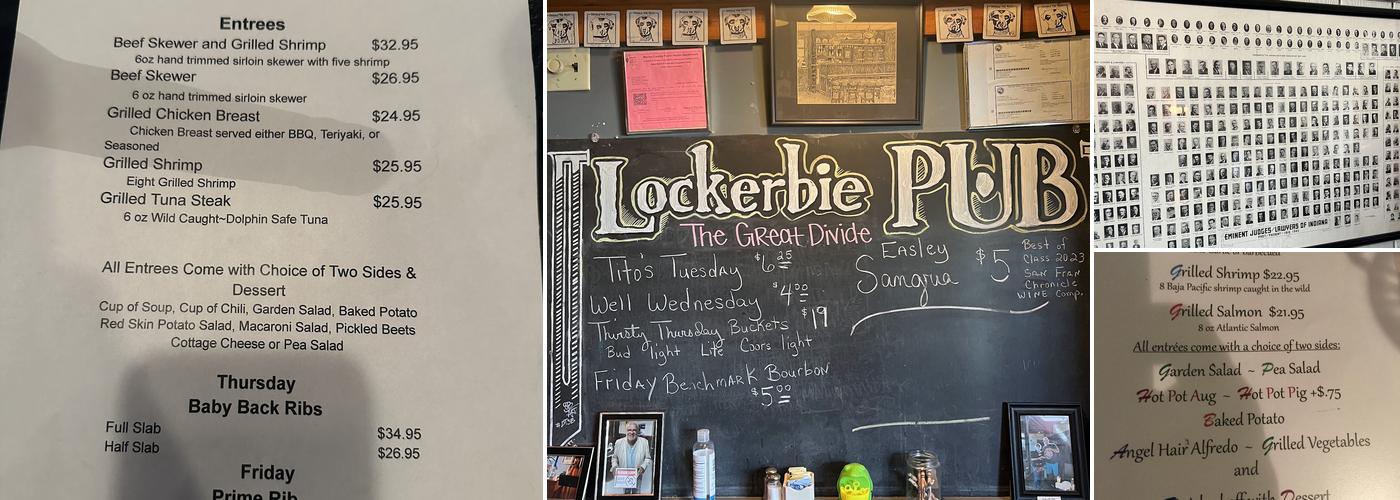 Entrees
Beef Skewer and Grilled Shrimp $32.95
6oz hand trimmed sirloin skewer with five shrimp
Beef Skewer $26.95
6 oz hand trimmed sirloin skewer
Grilled Chicken Breast $24.95
Chicken Breast served either BBQ, Teriyaki, or
Seasoned
Grilled Shrimp $25.95
Eight Grilled Shrimp
Grilled Tuna Steak $25.95
6 oz Wild Caught~Dolphin Safe Tuna
All Entrees Come with Choice of Two Sides &
Dessert
Cup of Soup, Cup of Chili, Garden Salad, Baked Potato
Red Skin Potato Salad, Macaroni Salad, Pickled Beets
Cottage Cheese or Pea Salad
Thursday
Baby Back Ribs
Full Slab $34.95
Half Slab $26.95
Friday
Prime Rib
Lockerbie PUB
The Great Divide
Tito's Tuesday $6 25
Well Wednesday $4 00
Thirsty Thursday Buckets $19
Bud light Lite Coors light
Friday Benchmark Bourbon
$5 00
Easley
Sangrua $5
Best of
Class 2023
San Fran
Chronicle
Wine Comp.
EMINENT JUDGES & LAWYERS OF INDIANA
Grilled Shrimp $22.95
8 Baja Pacific shrimp caught in the wild
Grilled Salmon $21.95
8 oz Atlantic Salmon
All entrées come with a choice of two sides:
Garden Salad ~ Pea Salad
Hot Pot Aug ~ Hot Pot Pig +$.75
Baked Potato
Angel Hair Alfredo ~ Grilled Vegetables
and
Dessert